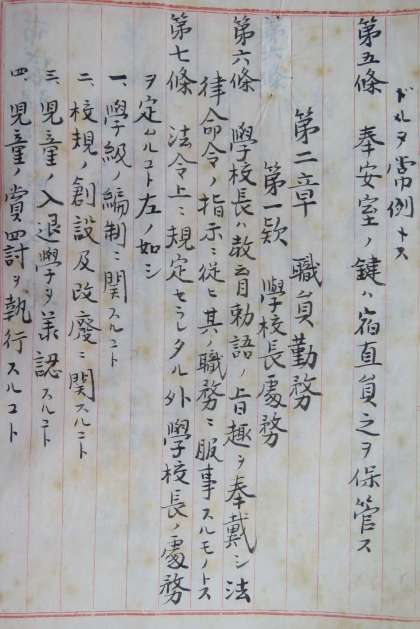 ドルヲ常例トス
第五條　奉安室ノ鍵ハ宿直員之ヲ保管ス
第二章　職員勤務
第一欵　學校長處務
第六條　學校長ハ教育勅語ノ旨趣ヲ奉戴シ法
律命令ノ指示ニ從ヒ其ノ職務ニ服事スルモノトス
第七條　法令上ニ規定セラレタル外學校長ノ處務
ヲ定ムルコト左ノ如シ
一、學級ノ編制ニ関スルコト
二、校規ノ創設及改廢ニ関スルコト
三、児童ノ入退學ヲ承認スルコト
四、児童ノ賞罰ヲ執行スルコト